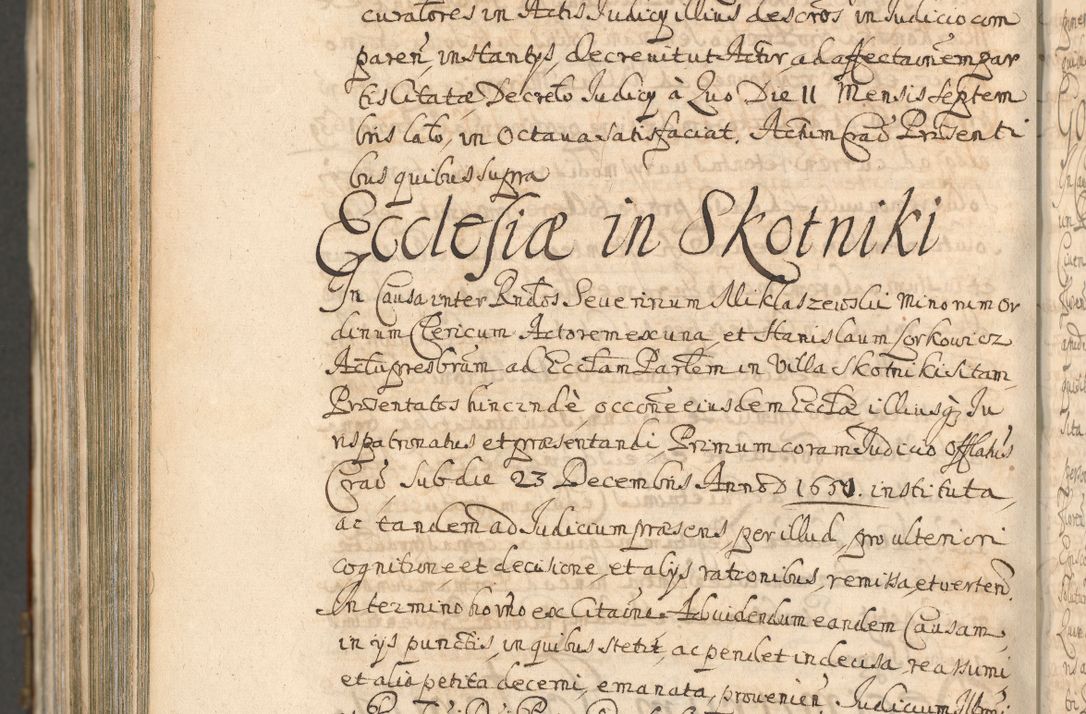 curatores in Actis Judicy illius descros in Judicio com
paren, instantys, decrevit ut Actor ad affectaōnem par
tis Citatæ Decreto Judicy à Quo Die 11 Mensis Septem
bris lato, in Octava satisfaciat. Actum Crac Præsenti
bus quibus supra
Ecclesiæ in Skotniki
In Causa inter Rndos Severinum Miklaszewski Minorum Or
dinum Clericum Actorem ex una et Stanislaum Sorkowicz
Actu presbrum ad Ecclam Parlem in Villa Skotniki sitam
Præsentatos hinc indè occone eiusdem Ecclæ illiusq Ju
ris patronatus et præsentandi, Primum coram Judicio Offlatus
Crac sub die 23 Decembris Anno D 1650. instituta,
ac tandem ad Judicium præsens, per illud, pro ulteriori
cognitione et decisione, et alys rationibus, remissa, et verten.
In termino horno ex Citaōne Ad videndum eandem Causam,
in ys punctis, in quibus stetit, ac pendet indecisa, reassumi
et alio petita decerni, emanata, provenien Judicium Illmi